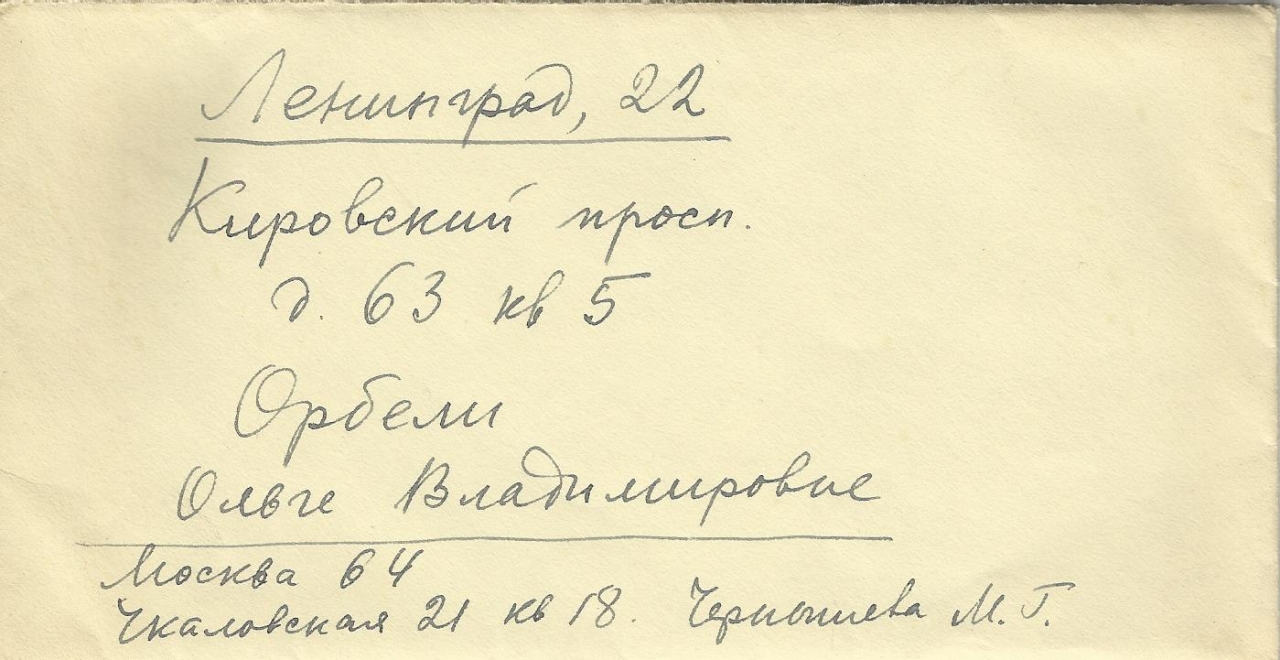 Ленинград, 22
Кировский просп.
д. 63 кв 5
Орбели
Ольге Владимировне
Москва 64
Чкаловская 21 кв 18. Чернышева М. Г.